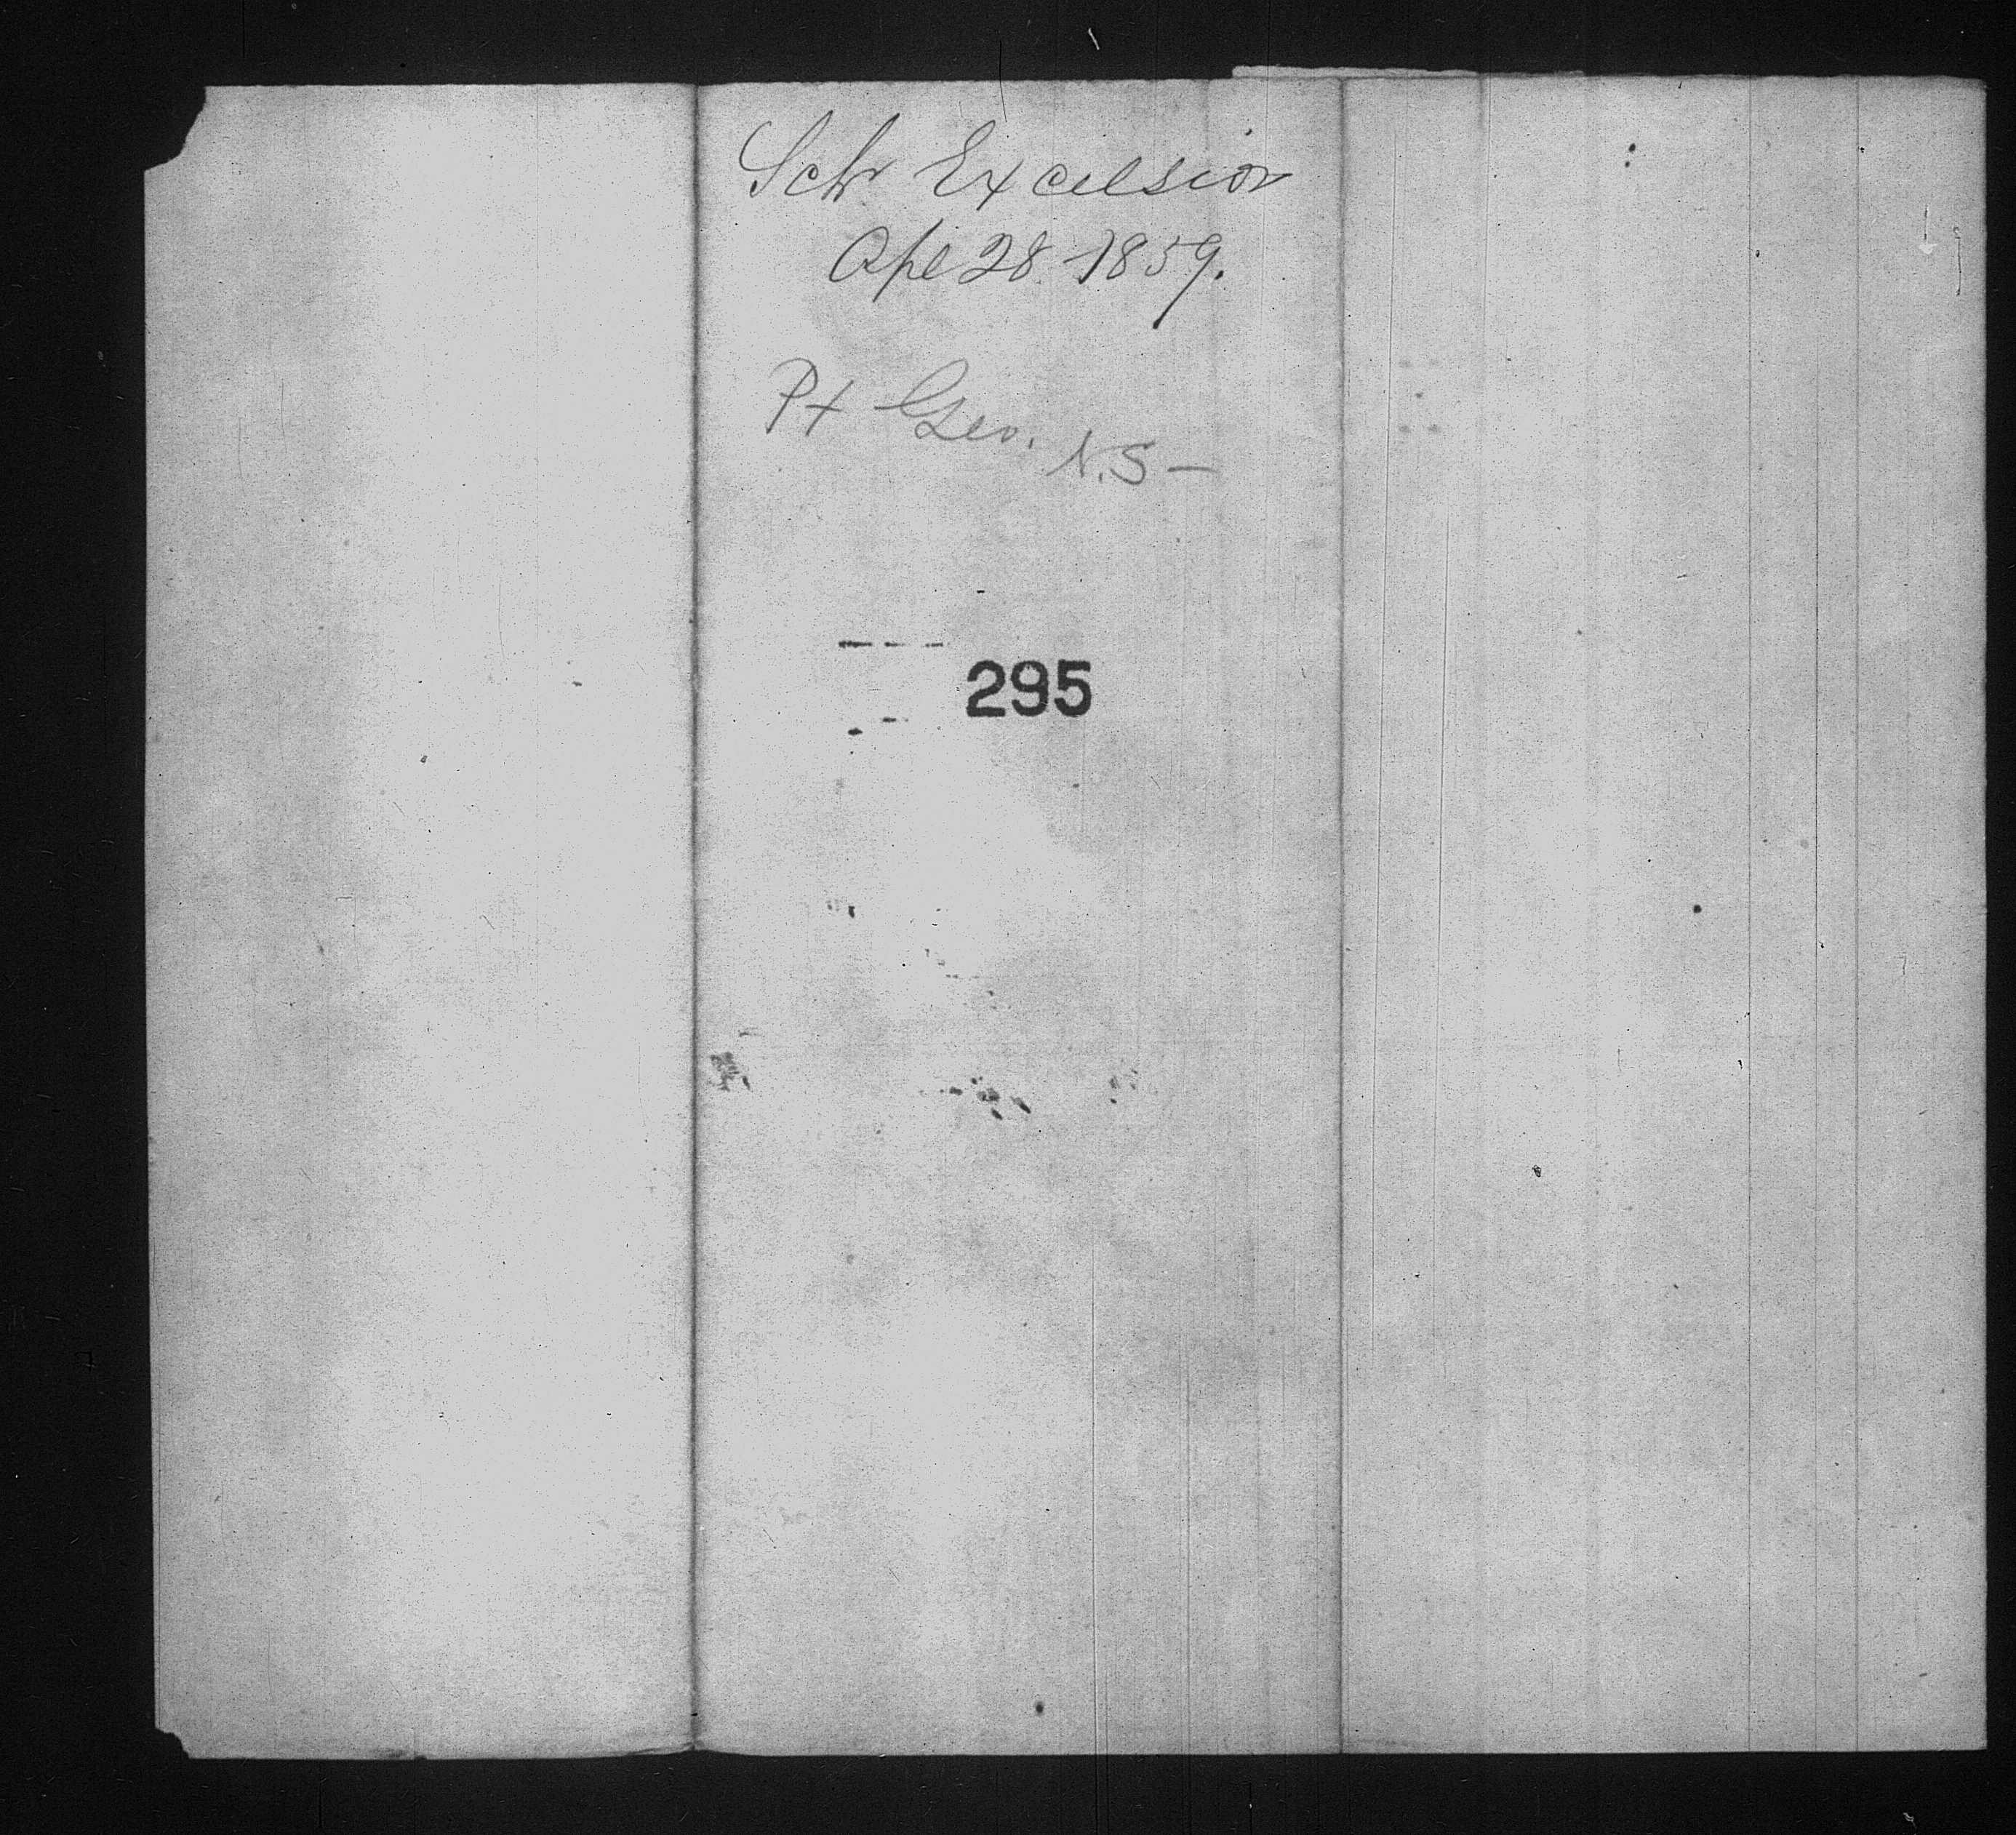 Schr Excelsior
Apl 28 1859.
Pt Geo. N.S—
295